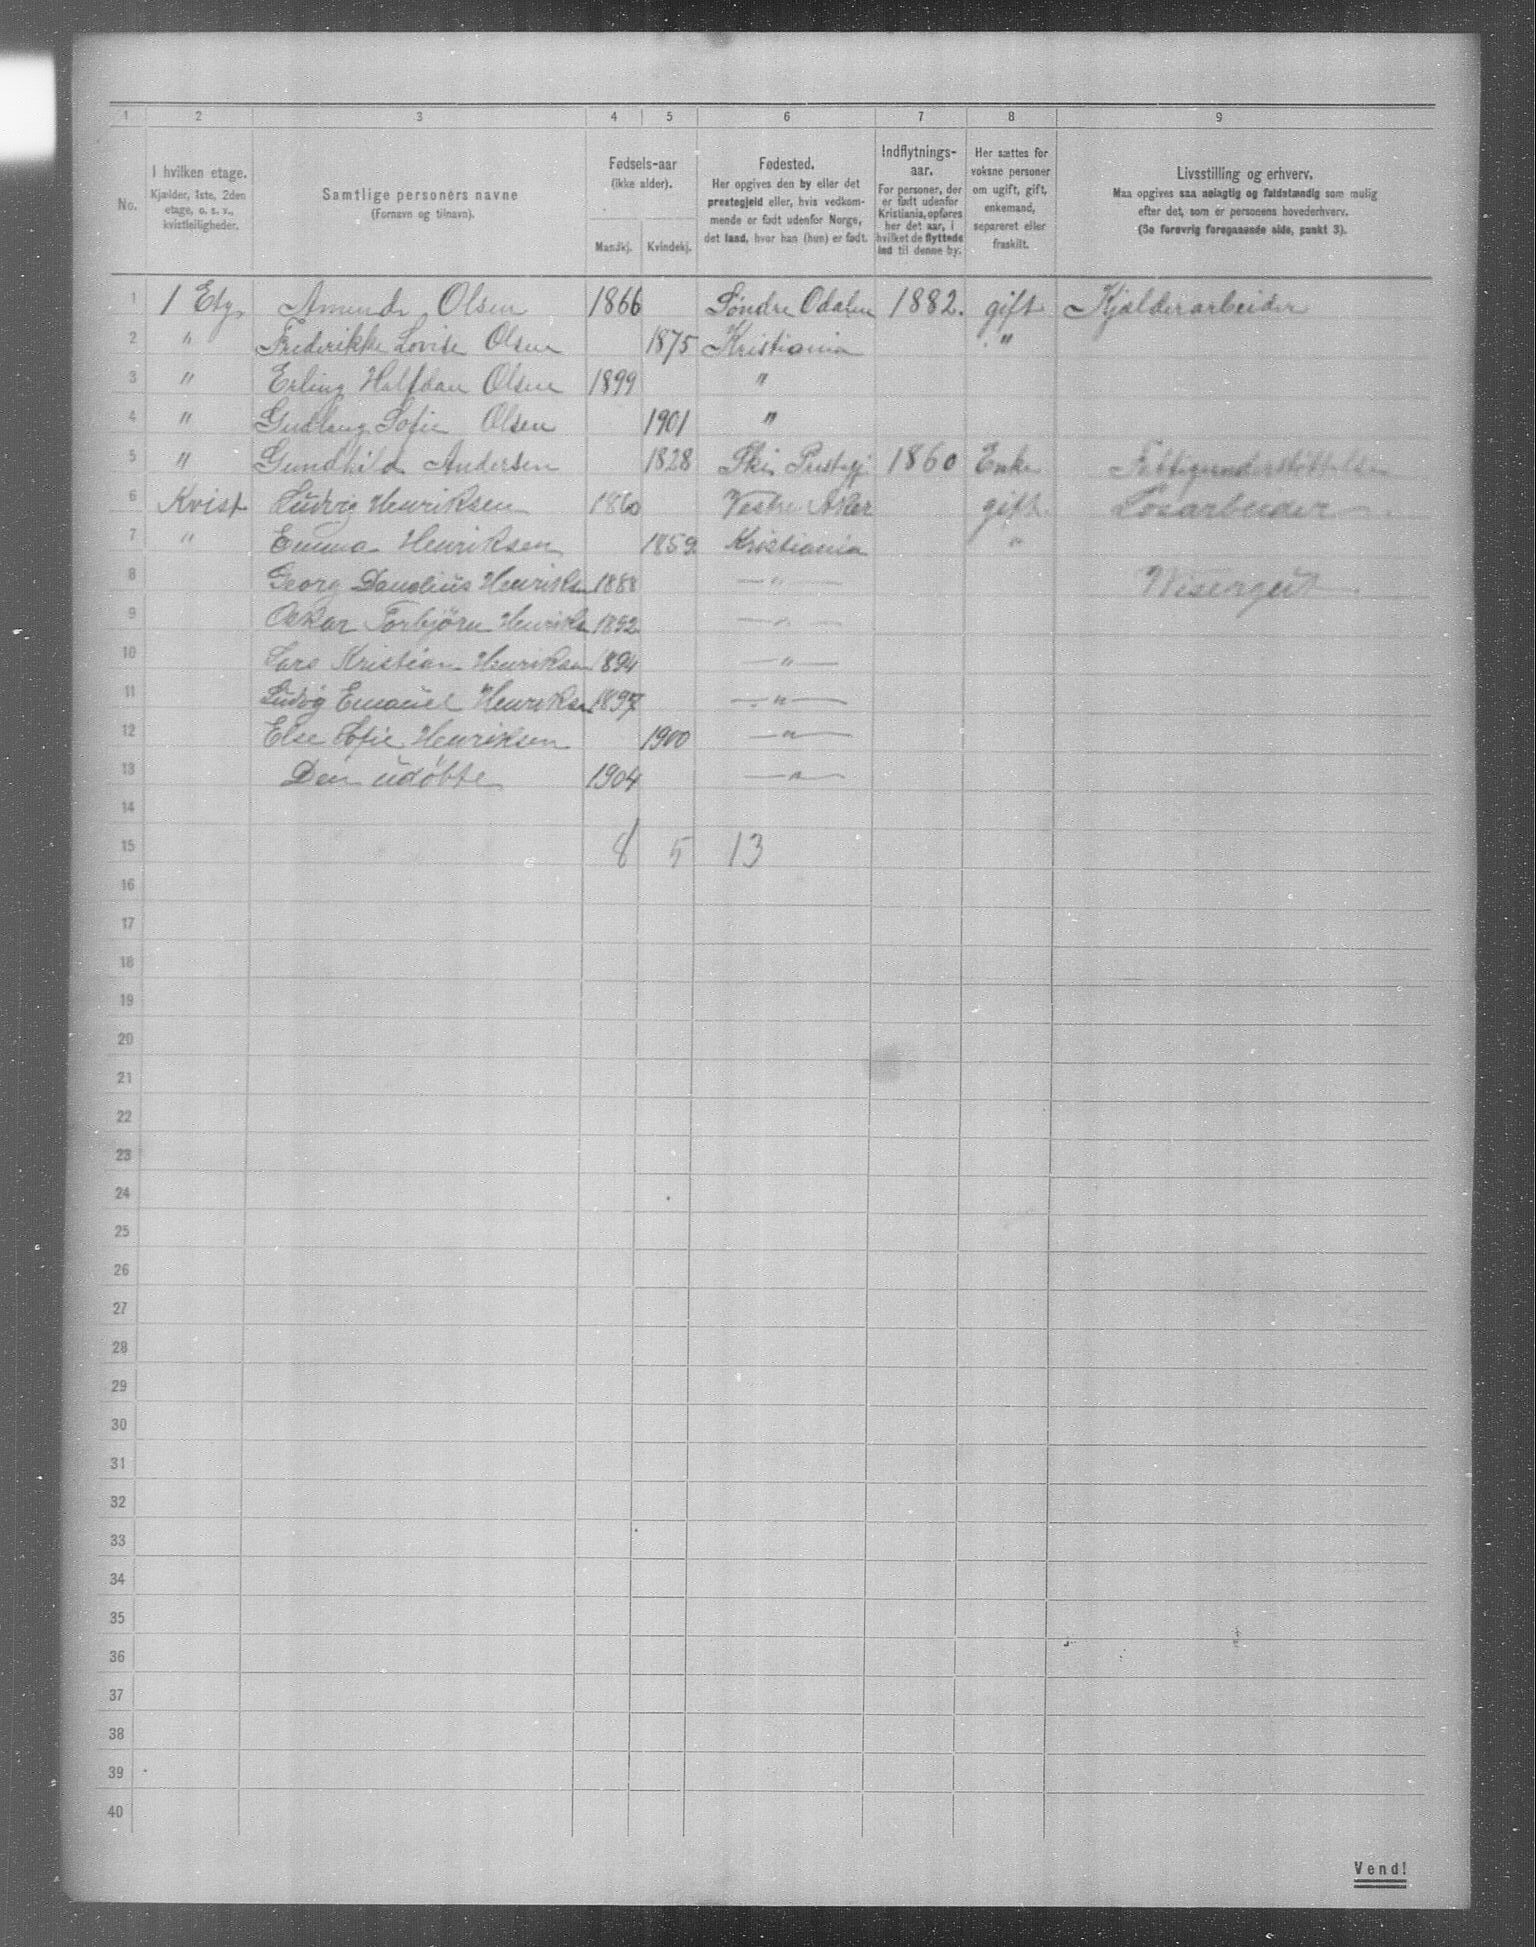 1 2 3 4 5 6 7 8 9
No.
I hvilken etage.
Kjælder, 1ste, 2den
etage, o. s. v.,
kvistleiligheder.
Samtlige personers navne
(Fornavn og tilnavn).
Fødsels-aar
(ikke alder).
Mandkj. Kvindekj.
Fødested.
Her opgives den by eller det
prestegjeld eller, hvis vedkom-
mende er født udenfor Norge,
det land, hvor han (hun) er født.
Indflytnings-
aar.
For personer, der
er født udenfor
Kristiania, opføres
her det aar, i
hvilket de flyttede
ind til denne by.
Her sættes for
voksne personer
om ugift, gift,
enkemand,
separeret eller
fraskilt.
Livsstilling og erhverv.
Maa opgives saa nøiagtig og fuldstændig som mulig
efter det, som er personens hovederhverv.
(Se forøvrig foregaaende side, punkt 3).
1 1 Etg. Amund Olsen 1866 Søndre Odalen 1882. gift Kjælderarbeider
2 " Frederikke Lovise Olsen 1875 Kristiania "
3 " Erling Halfdan Olsen 1899 "
4 " Gudlaug Sofie Olsen 1901 "
5 " Gundhild Andersen 1828 Ski Prestegj 1860 Enke Fattigunderstøttelse
6 Kvist Ludvig Henriksen 1860 Vestre Aker gift Løsarbeider
7 " Emma Henriksen 1859 Kristiania "
8 Georg Danolius Henriksen 1888 — " — Visergut
9 Oskar Torbjørn Henriksen 1892 — " —
10 Lars Kristian Henriksen 1894 — " —
11 Ludvig Emanuel Henriksen 1897 — " —
12 Else Sofie Henriksen 1900 — " —
13 Den udøbte 1904 — " —
14
15 8 5 13
16
17
18
19
20
21
22
23
24
25
26
27
28
29
30
31
32
33
34
35
36
37
38
39
40
Vend!